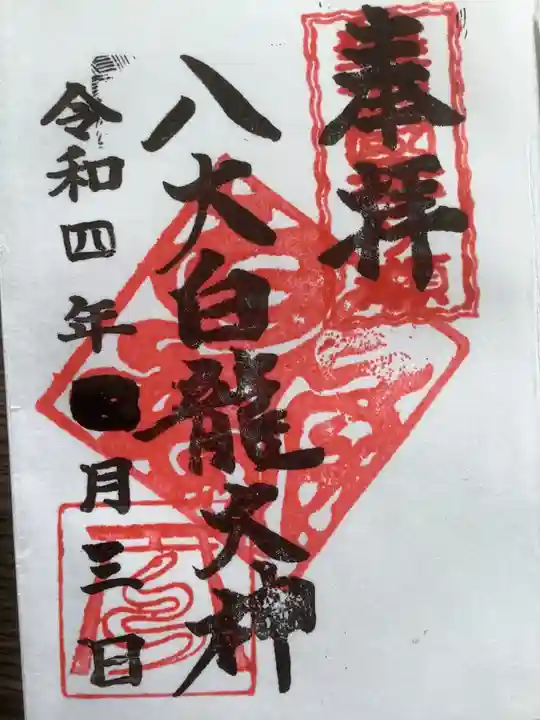 奉拝
八大白龍大神
令和四年四月三日